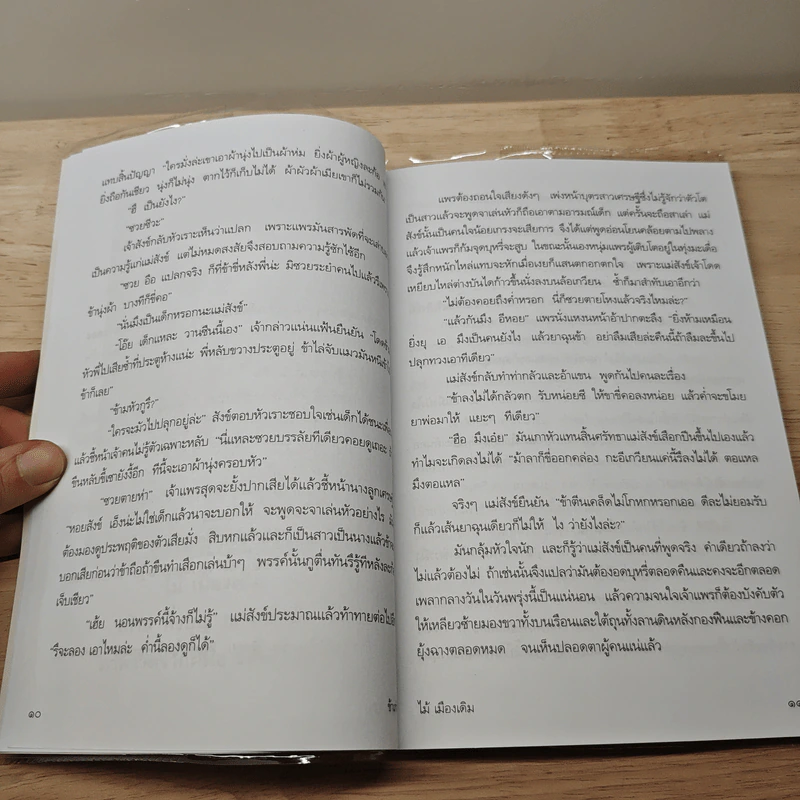 แทบสิ้นปัญญา -ใครมั่งล่ะเขาเอาผ้านุ่งไปเป็นผ้าห่ม ยิ่งผ้าผู้หญิงละก้อ
ยิ่งถือกันเชียว นุ่งก็ไม่นุ่ง ตากไว้ก็เก็บไม่ได้ ผ้าผัวผ้าเมียเขาก็ไม่รวมกัน
"ฮี เป็นยังไง?"
"ซวยซีวะ"
เจ้าสังข์กลับหัวเราะเห็นว่าแปลก เพราะแพรมันสารพัดที่จะเล่า
เป็นความรู้แก่แม่สังข์ แต่ไม่หมดสงสัยจึงสอบถามความรู้ซักไซ้อีก
"ซวย อือ แปลกจริง ก็ที่ข้าขี่หลังพี่น่ะ มิซวยระยำคนไปแล้วรึ
ข้านุ่งผ้า บางทีก็ขี่คอ"
"นั่นมึงเป็นเด็กหรอกนะแม่สังข์"
"โอ๊ย เด็กแหละ วานซืนนี้เอง" เจ้ากล่าวแน่นแฟ้นยืนยัน
หัวพี่ไปเสียซ้ำที่ประตูห้างแน่ะ พี่หลับขวางประตูอยู่ ข้าไล่จับแมวมันหนี
ข้าก็เลย"
"ข้ามหัวกูรึ?"
"ใครจะมัวไปปลุกอยู่ล่ะ" สังข์ตอบหัวเราะชอบใจเช่นเด็กได้ชนะ
แล้วชี้หน้าเจ้าคนไม่รู้ตัวเฉพาะหลับ "นี่แหละซวยบรรลัยทีเดียวคอยดูเถอะ
ขืนหลับขี้เซายังงี้อีก ทีนี้จะเอาผ้านุ่งครอบหัว"
"ซวยตายห่า" เจ้าแพรสุดจะยั้งปากเสียได้แล้วชี้หน้านางลูกเศรษฐี
"หอยสังข์ เอ็งน่ะไม่ใช่เด็กแล้วนาจะบอกให้ จะพูดจะจาเล่นหัวอย่างไร
ต้องมองดูประพฤติของตัวเสียมั่ง สิบหกแล้วและก็เป็นสาวเป็นนางแล้ว
บอกเสียก่อนว่าข้าถือถ้าขืนทำเสือกเล่นบ้าๆ พรรค์นั้นกูตื่นทันรีรู้ทีหลังละก้อ
เจ็บเชียว"
"เฮ้ย นอนพรรค์นี้จ้างก็ไม่รู้" แม่สังข์ประมาณแล้วท้าทายต่อไป
"รึจะลอง เอาไหมล่ะ ค่ำนี้ลองดูก็ได้"
๑๐
แพรต้องถอนใจเสียงดังๆ เพ่งหน้าบุตรสาวเศรษฐีซึ่งไม่รู้จักว่าตัวโต
เป็นสาวแล้วจะพูดจาเล่นหัวก็ถือเอาตามอารมณ์เด็ก แต่ครั้นจะถือสาเล่า แม่
สังข์นั้นเป็นคนใจน้อยเกรงจะเสียการ จึงได้แต่พูดอ่อนโยนคล้อยตามไปพลาง
แล้วเจ้าแพรก็ก้มจุดบุหรี่จะสูบ ในขณะนั้นเองหนุ่มแพรผู้เติบโตอยู่ในทุ่งมะเดื่อ
จึงรู้สึกหนักไหล่แทบจะหักเมื่อเงยก็แสนตกอกตกใจ เพราะแม่สังข์เจ้าโดด
เหยียบไหล่ต่างบันไดก้าวขึ้นนั่งบนล้อเกวียน ซ้ำก็มาสำทับเอาอีกว่า
"ไม่ต้องคอยถึงค่ำหรอก นี่ก็ซวยตายโหงแล้วจริงไหมล่ะ?"
"แล้วกันมึง อีหอย" แพรนั่งแหงนหน้าอ้าปากตะลึง "ยิ่งห้ามเหมือน
ยิ่งยุ เอ มึงเป็นคนยังไง แล้วยาฉุนข้า อย่าลืมเสียล่ะคืนนี้ถ้าลืมละขึ้นไป
ปลุกทวงเอาทีเดียว"
แม่สังข์กลับทำท่ากลัวและอ้าแขน พูดกันไปคนละเรื่อง
"ข้าลงไม่ได้กลัวตก รับหน่อยซี ให้ขาขี่คอลงหน่อย แล้วค่ำจะขโมย
ยาพ่อมาให้ แยะๆ ทีเดียว"
"ฮือ มึงเอ๋ย" มันเกาหัวแทนสิ้นศรัทธาแม่สังข์เสือกปีนขึ้นไปเองแล้ว
ทำไมจะเกิดลงไม่ได้ "ม้าลาก็ขี่ออกคล่อง กะอีเกวียนแค่นี้รึลงไม่ได้ ตอแหล
มึงตอแหล"
จริงๆ แม่สังข์ยืนยัน "ข้าตีนเคล็ดไม่โกหกหรอกเออ ดีละไม่ยอมรับ
ก็แล้วเส้นยาฉุนเดียวก็ไม่ให้ ไง ว่ายังไงล่ะ?"
มันกลุ้มหัวใจนัก และก็รู้ว่าแม่สังข์เป็นคนที่พูดจริง คำเดียวถ้าลงว่า
ไม่แล้วต้องไม่ ถ้าเช่นนั้นจึงแปลว่ามันต้องอดบุหรี่ตลอดคืนและคงจะอีกตลอด
เพลากลางวันในวันพรุ่งนี้เป็นแน่นอน แล้วความจนใจเจ้าแพรก็ต้องบังคับตัว
ให้เหลียวซ้ายมองขวาทั้งบนเรือนและใต้ถุนทั้งลานดินหลังกองฟืนและข้างคอก
ยุ้งฉางตลอดหมด จนเห็นปลอดตาผู้คนแน่แล้ว
ไม้ เมืองเดิม
๑๑